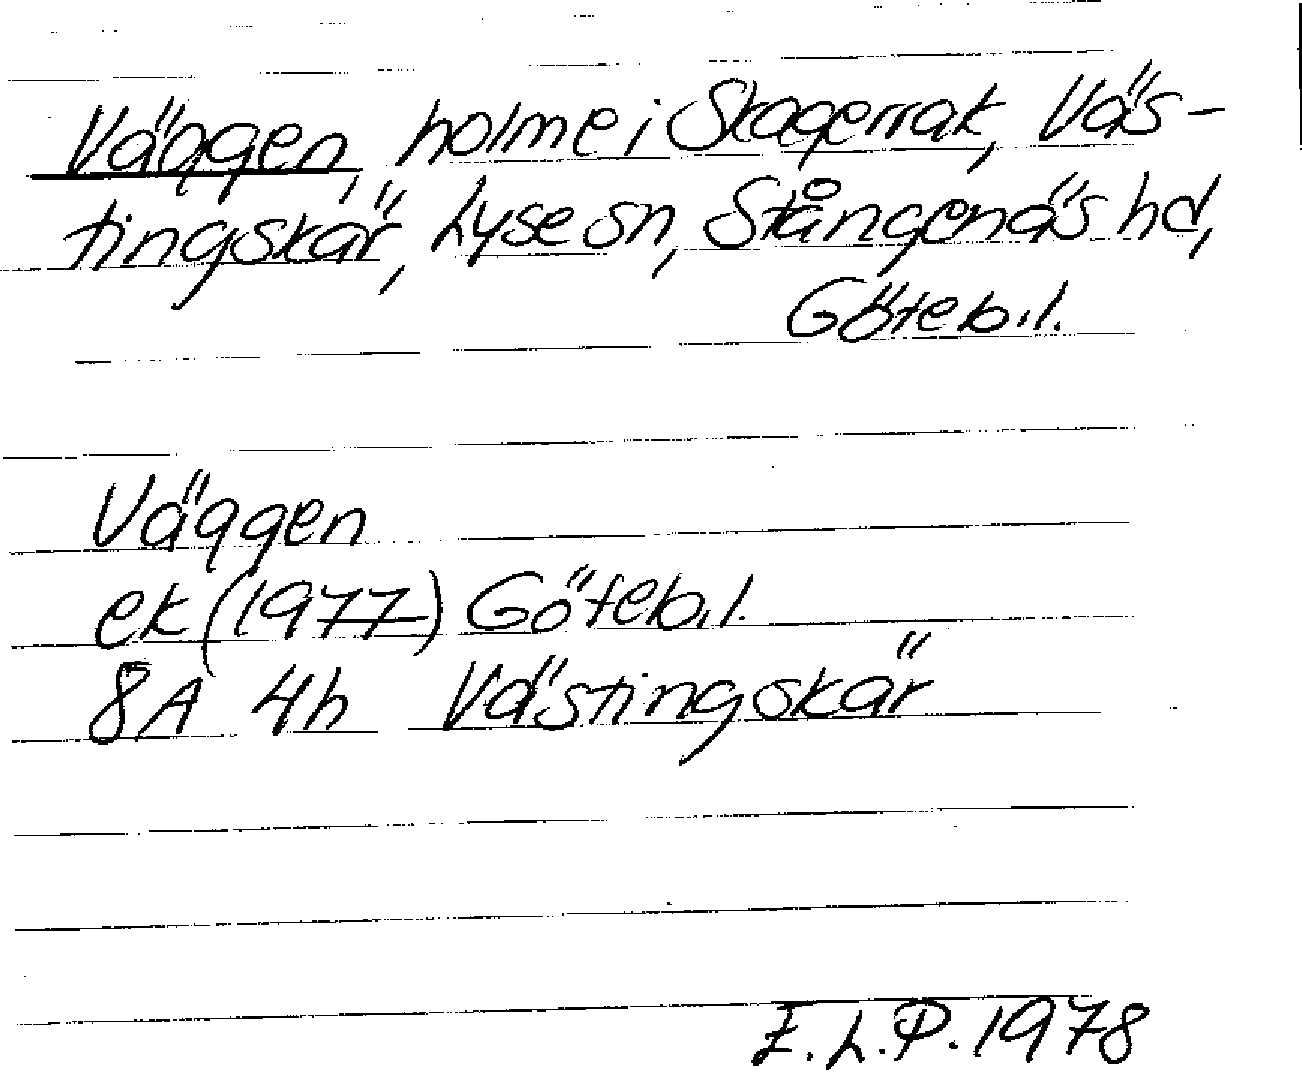 Väggen, holme i Skagerrak, Väs-
tingskär, Lyse sn, Stångenäs hd,
Göteb.l.
Väggen
ek (1977) Göteb.l.
8A 4h Västingskär
E.L.P. 1978